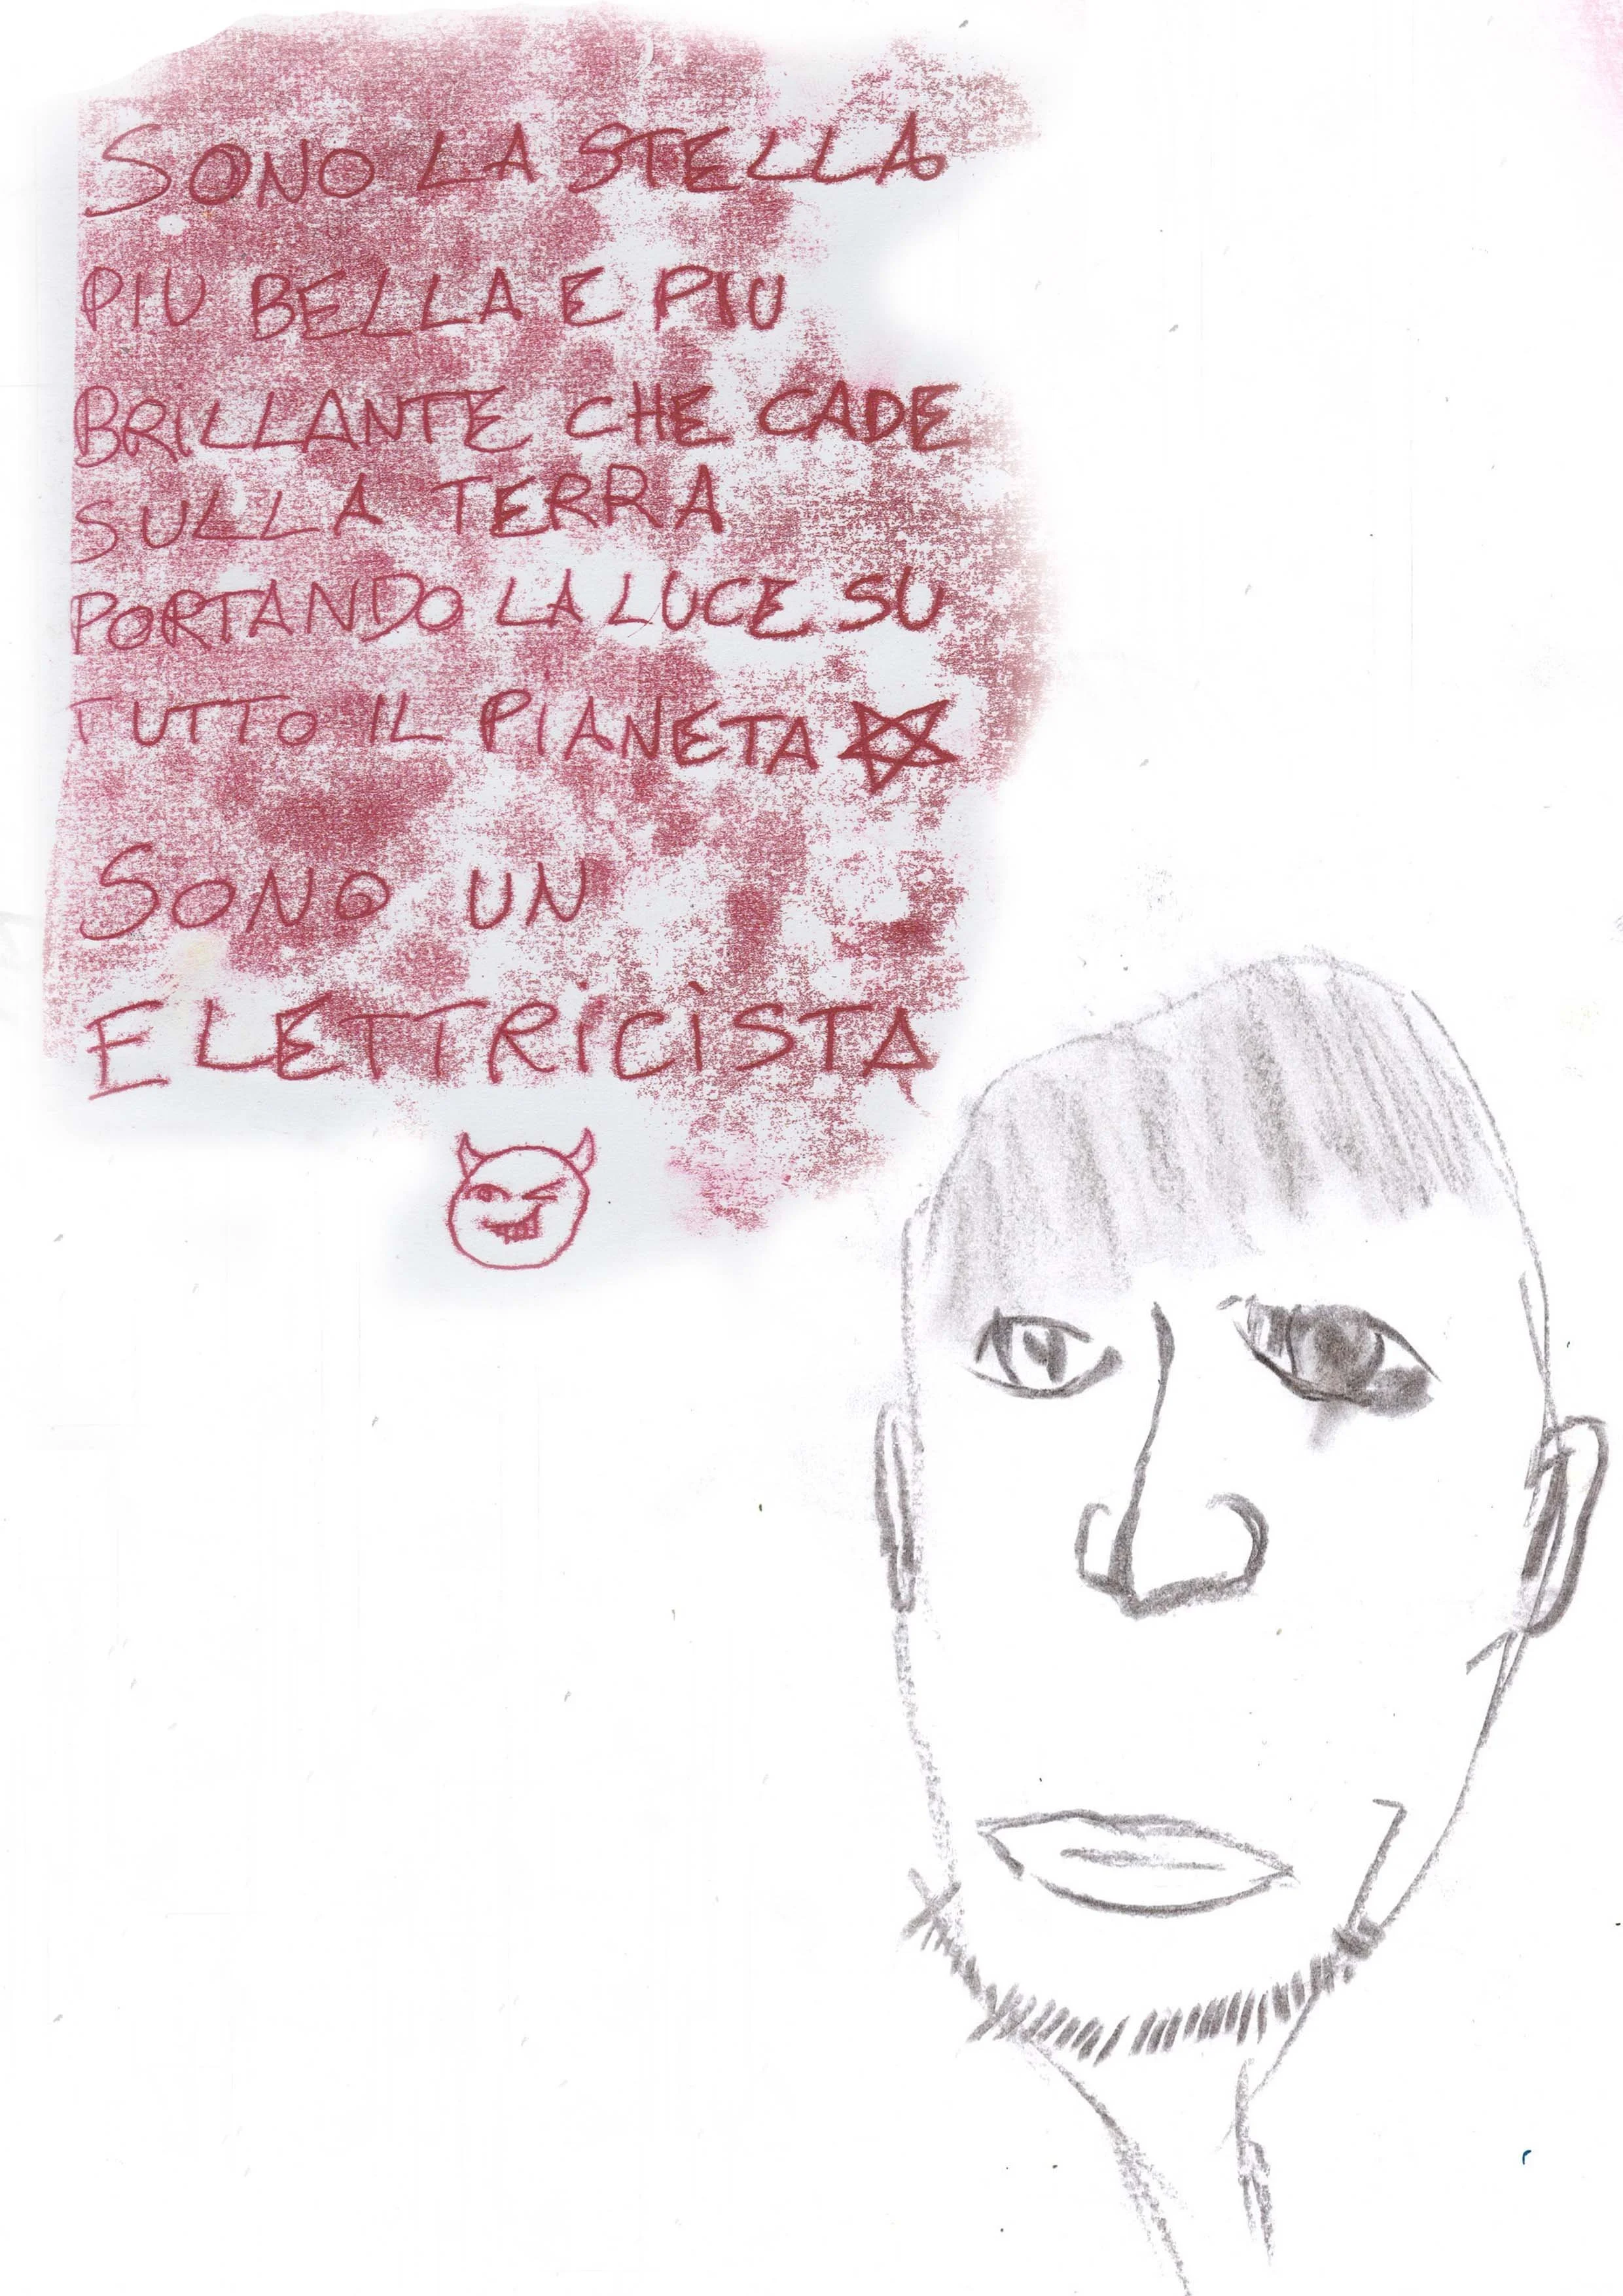 SONO LA STELLA
PIU BELLA E PIU
BRILLANTE CHE CADE
SULLA TERRA
PORTANDO LA LUCE SU
TUTTO IL PIANETA
SONO UN
ELETTRICISTA